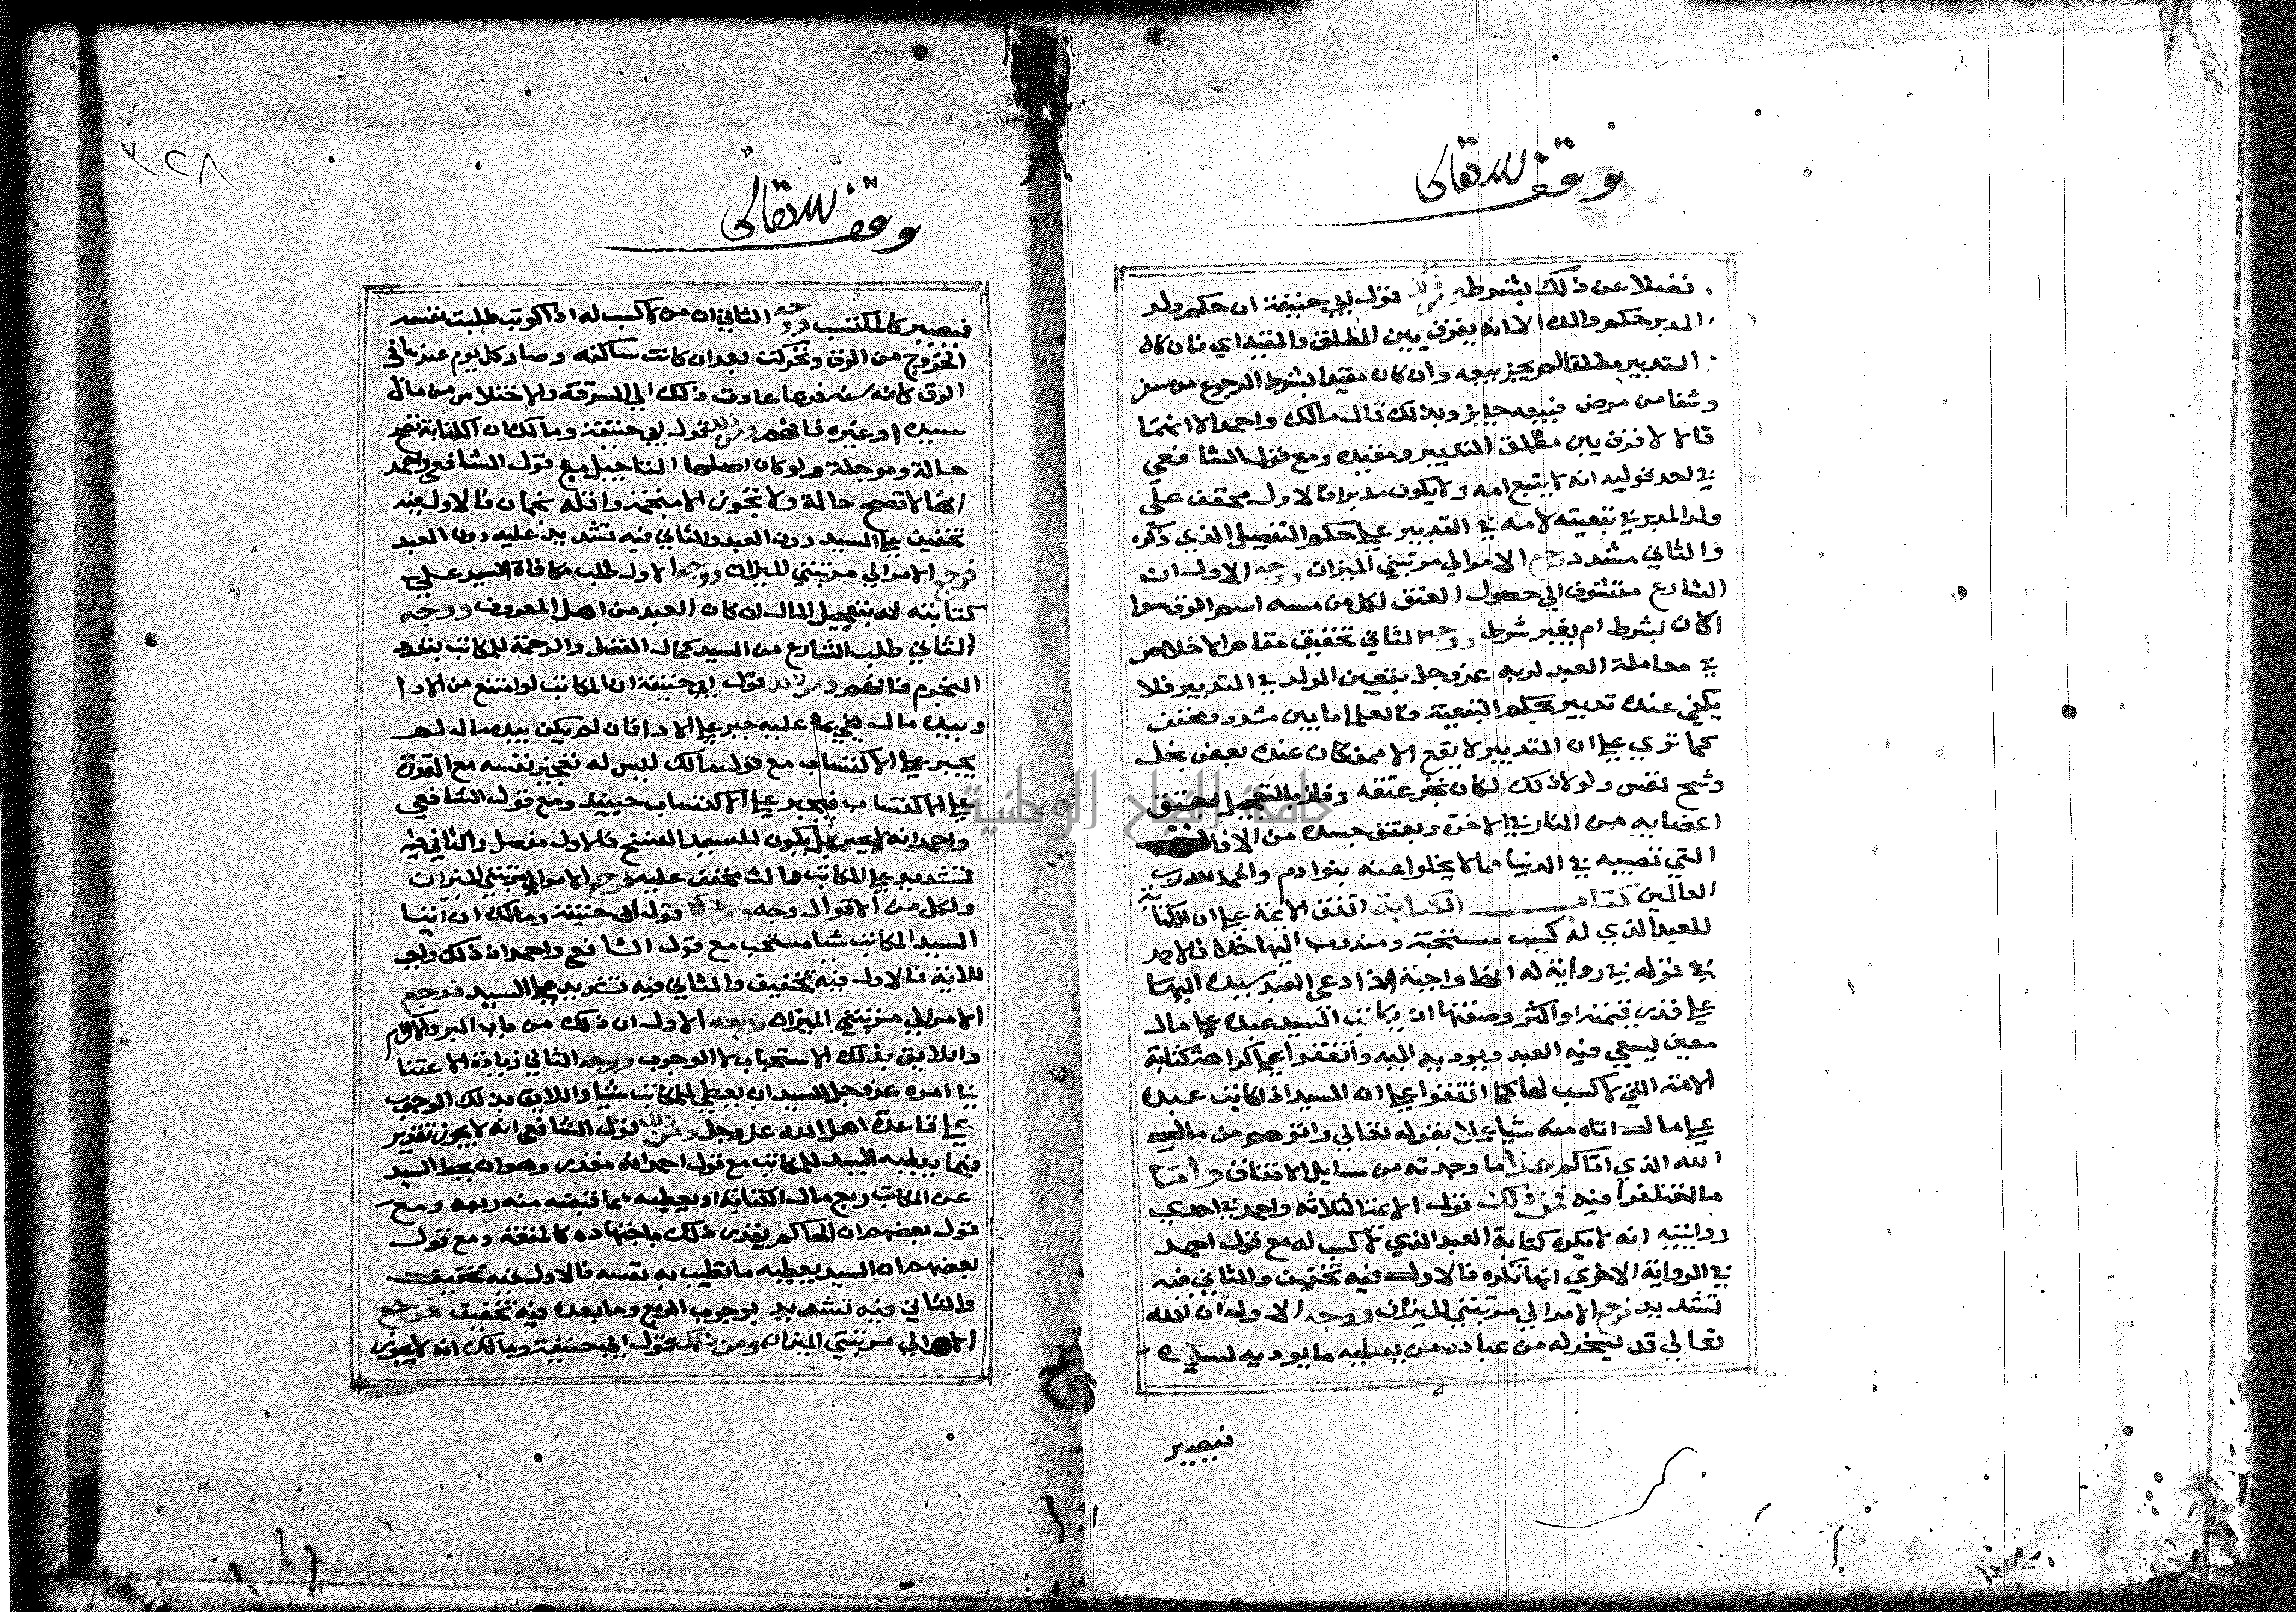 وقف لله تعالى
فضلا عن ذلك بشرطه ومن ذلك قول ابي حنيفة ان حكم ولد
المدبر حكم والده الا انه يفرق بين المطلق والمقيد اي فان كان
التدبير مطلقا لم يجز بيعه وان كان مقيدا بشرط الرجوع من سفر
وشفا من مرض فبيعه جايز وبذلك قال مالك واحمد الا انهما
قالا لا فرق بين مطلق التدبير ومقيده ومع قول الشافعي
في احد قوليه انه لا يتبع امه ولا يكون مدبرا فالاول مخفف على
ولد المدبر في تبعيته لامه في التدبير على حكم التفصيل الذي ذكره
والثاني مشدد فرجع الامر الي مرتبتي الميزان ووجه الاول ان
الشارع متشوف الي حصول العتق لكل من مسه اسم الرق سوا
اكان بشرط ام بغير شرط ووجه الثاني تحقيق مقام الاخلاص
في معاملة العبد لربه عز وجل بتعين الولد في التدبير فلا
يكفي عنده تدبير بحكم التبعية فالعلما ما بين مشدد ومخفف
كما تري على ان التدبير لا يقع الا ممن كان عنده بعض بخل
وشح نفس ولولا ذلك لكان نجز عتقه وفاز بالتعجيل بعتق
اعضايه من النار في الاخرة وبعتق جسده من الافات
التي تصيبه في الدنيا مما لا يخلوا عنه بنوا ادم والحمد لله رب
العالمين كتاب الكتابة اتفق الايمة على ان الكتابة
للعبد الذي له كسب مستحبة ومندوب اليها خلافا لاحمد
في قوله في رواية له انها واجبة اذا دعى العبد سيده اليها
على قدر قيمته او اكثر وصفتها ان يكاتب السيد عبده على مال
معين يسعي فيه العبد ويوديه اليه واتفقوا على كراهة كتابة
الامة التي لا كسب لها كما اتفقوا على ان السيد اذا كاتب عبده
على مال اتاه منه شيا عملا بقوله تعالي واتوهم من مال
الله الذي اتاكم هذا ما وجدته من مسايل الاتفاق واما
ما اختلفوا فيه فمن ذلك قول الايمة الثلاثة واحمد في احدي
روايتيه انه لا يكره كتابة العبد الذي لا كسب له مع قول احمد
في الرواية الاخري انها تكره فالاول فيه تخفيف والثاني فيه
تشديد فرجع الامر الي مرتبتي الميزان ووجه الاول ان الله
تعالي قد يسخر له من عباده من يعطيه ما يوديه لسيده
فيصير
٣٢٨
وقف لله تعالى
فيصير كالمكتسب ووجه الثاني ان من لا كسب له اذا كوتب طلبت نفسه
الخروج من الرق وتحركت بعد ان كانت ساكنة وصار كل يوم عنده في
الرق كانه سنة فربما دعاه ذلك الي السرقة والاختلاس من مال
سيده او غيره فافهم ومن ذلك قول ابي حنيفة ومالك ان الكتابة تصح
حالة وموجلة ولو كان اصلها التاجيل مع قول الشافعي واحمد
انها لا تصح حالة ولا تجوز الا منجمة واقله نجمان فالاول فيه
تخفيف على السيد دون العبد والثاني فيه تشديد عليه دون العبد
فرجع الامر الي مرتبتي الميزان ووجه الاول طلب مكافاة السيد على
كتابته له بتعجيل المال ان كان العبد من اهل المعروف ووجه
الثاني طلب الشارع من السيد كمال الفضل والرحمة للمكاتب بتعدد
النجوم فافهم ومن ذلك قول ابي حنيفة ان المكاتب لو امتنع من الادا
وبيده مال يفي بما عليه جبر على الادا فان لم يكن بيده مال لم
يجبر على الاكتساب مع قول مالك ليس له تعجيز نفسه مع القدرة
على الاكتساب فيجبر على الاكتساب حينيذ ومع قول الشافعي
واحمد انه لا يجبر بل يكون للسيد الفسخ فالاول مفصل والثاني فيه
تشديد على المكاتب والثالث مخفف عليه فرجع الامر الي مرتبتي الميزان
ولكل من الاقوال وجه ومن ذلك قول ابي حنيفة ومالك ان ايتا
السيد المكاتب شيا مستحب مع قول الشافعي واحمد ان ذلك واجب
للاية فالاول فيه تخفيف والثاني فيه تشديد على السيد فرجع
الامر الي مرتبتي الميزان ووجه الاول ان ذلك من باب البر والاكرام
واللايق بذلك الاستحباب لا الوجوب ووجه الثاني زيادة الاعتنا
في امره عز وجل السيد ان يعطي المكاتب شيا واللايق بذلك الوجوب
على قاعدة اهل الله عز وجل ومن ذلك قول الشافعي انه لا يجوز تقدير
فيما يعطيه السيد للمكاتب مع قول احمد انه مقدر وهو ان يحط السيد
عن المكاتب ربع مال الكتابة او يعطيه مما قبضه منه ربعه ومع
قول بعضهم ان الحاكم يقدر ذلك باجتهاده كالمتعة ومع قول
بعضهم ان السيد يعطيه ما تطيب به نفسه فالاول فيه تخفيف
والثاني فيه تشديد بوجوب الربع وما بعده فيه تخفيف فرجع
الامر الي مرتبتي الميزان ومن ذلك قول ابي حنيفة ومالك انه لا يجوز